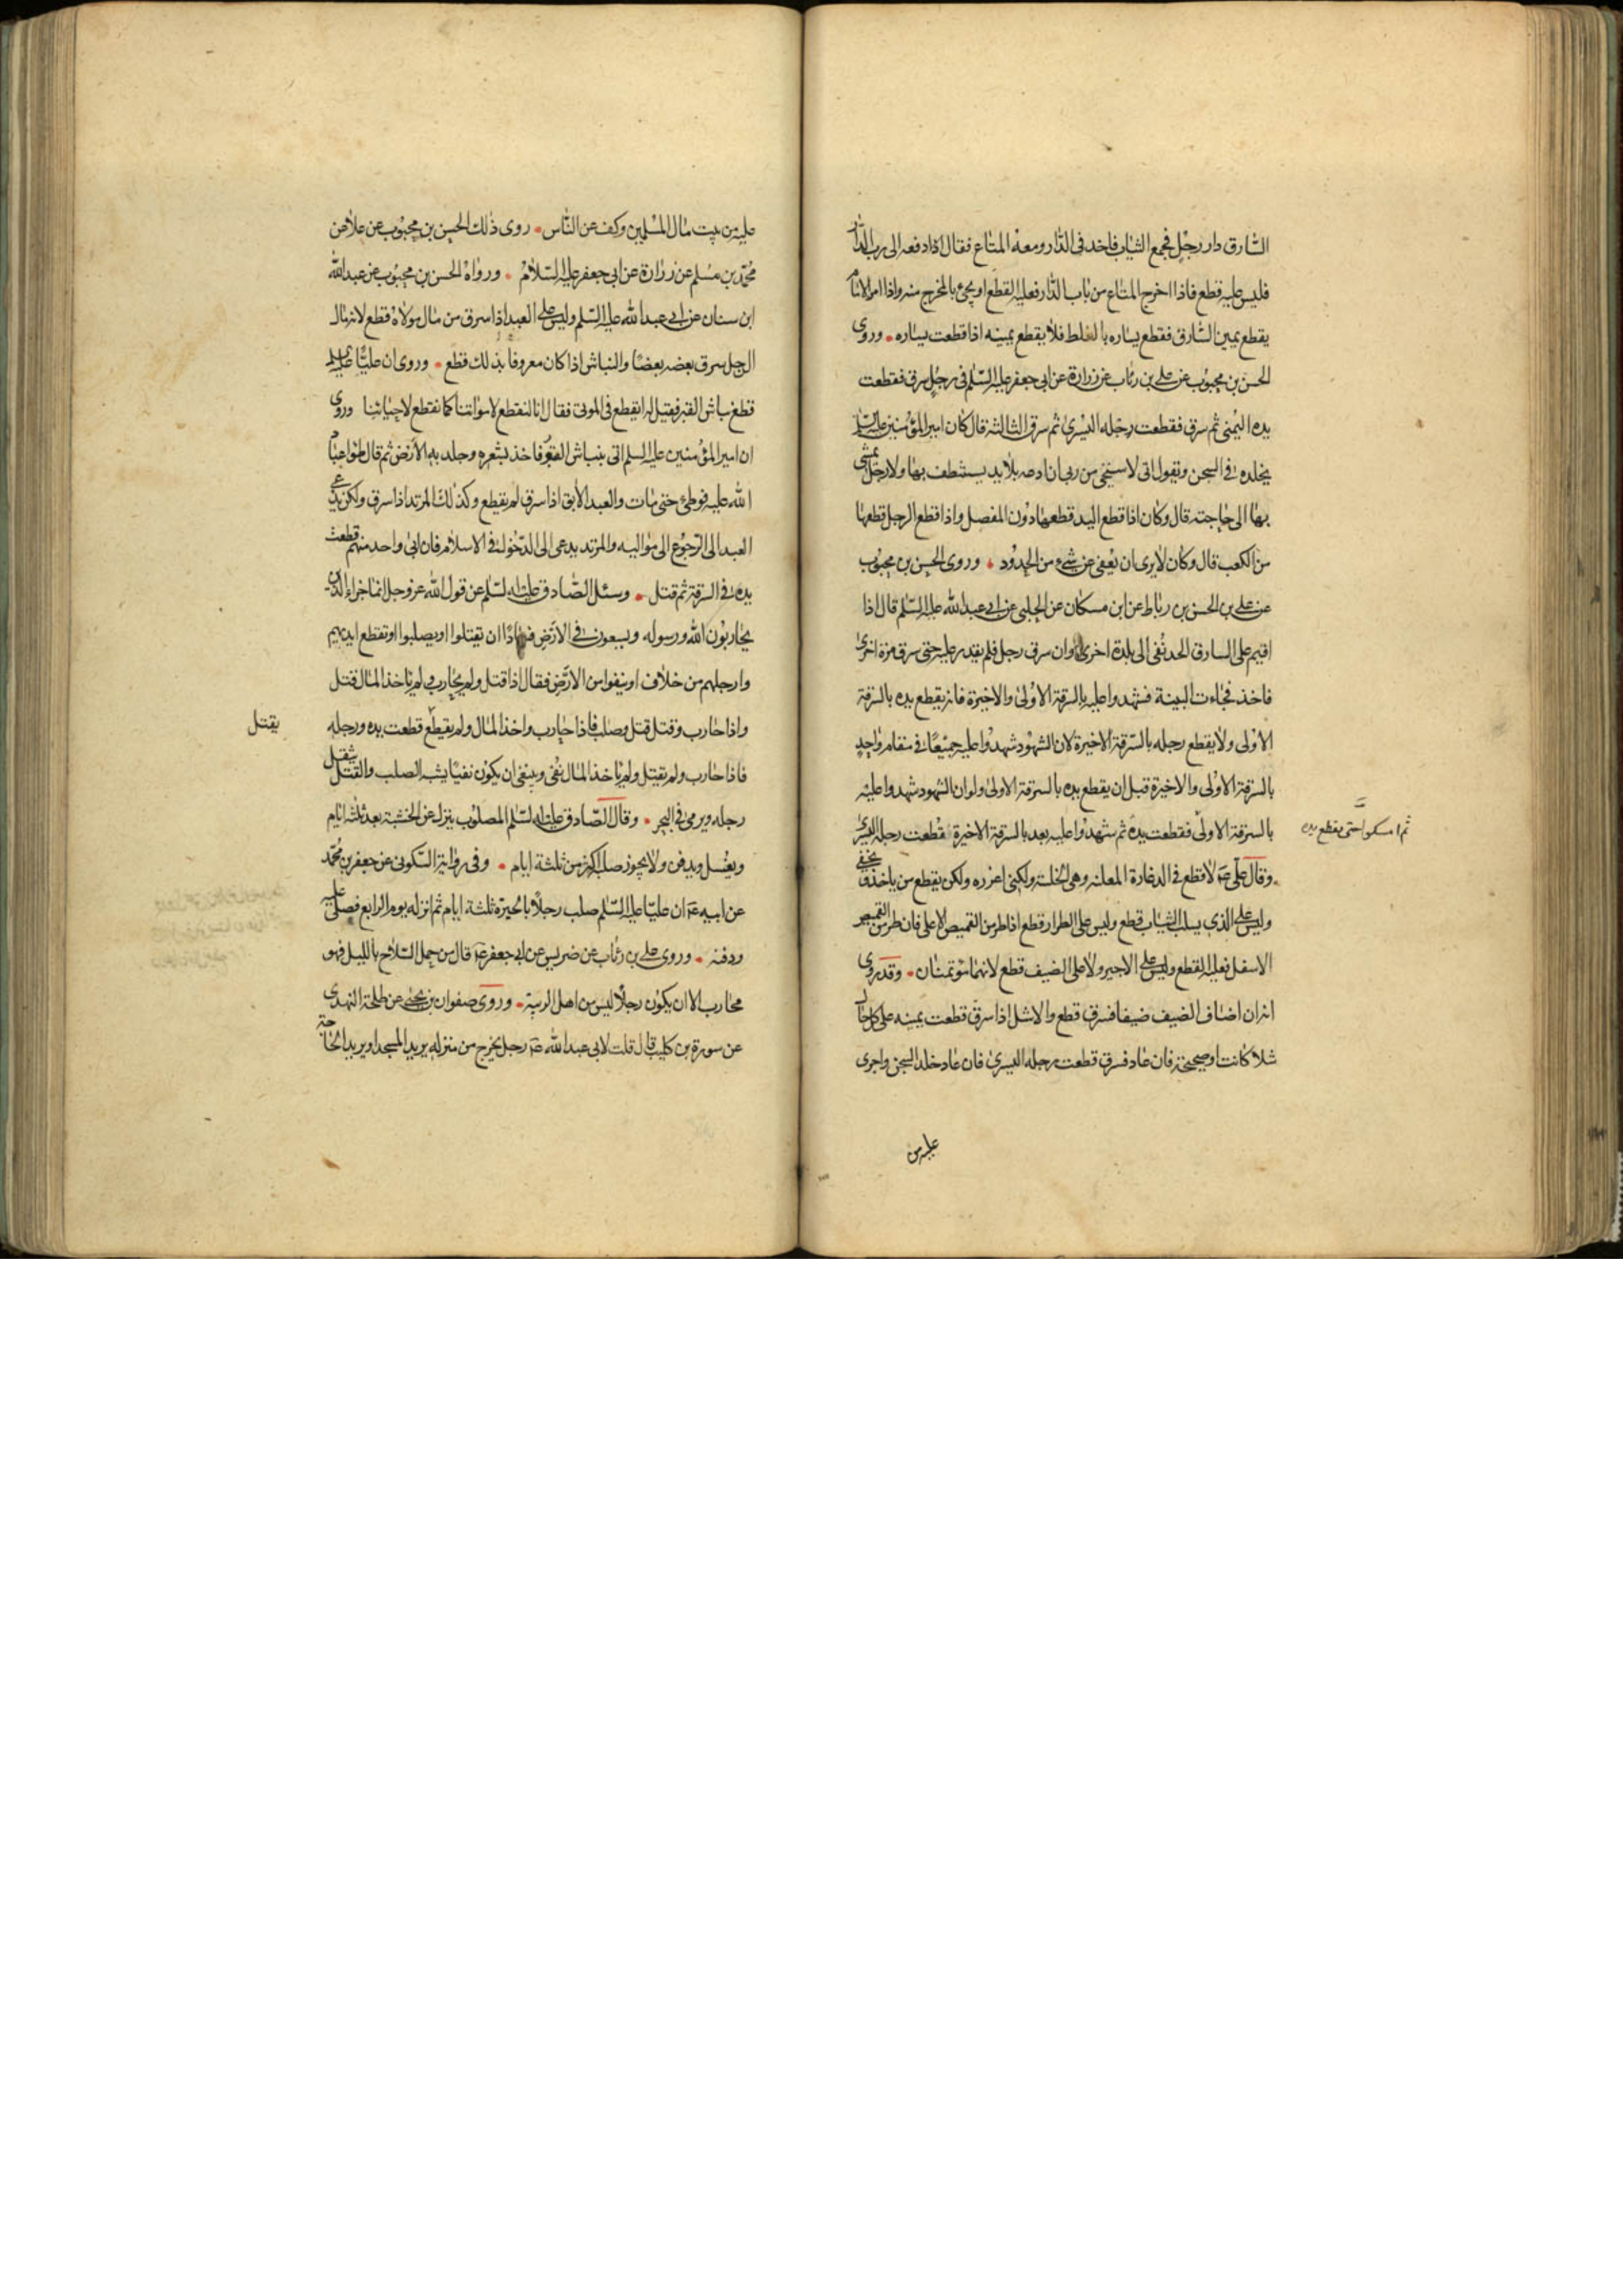 السّارق دار رجل فجمع الثياب فاخذ فى الدّار ومعه المتاع فقال اذا دفعه الى رب الدّار
فليس عليه قطع فاذا اخرج المتاع من باب الدّار فعليه القطع او يجئ بالمخرج منه واذا امر الامام
يقطع يمين السّارق فقطع يساره بالغلط فلا يقطع يمينه اذا قطعت يساره وروى
الحسن بن محبوب عن على بن رئاب عن زرارة عن ابى جعفر عليه السّلم فى رجل سرق فقطعت
يده اليمنى ثم سرق فقطعت رجله اليسرى ثم سرق الثالثة قال كان امير المؤمنين عليه السلم
يخلده فى السجن ويقول انى لاستحى من ربى ان ادعه بلا يد يستنظف بها ولا رجل يمشى
بها الى حاجته قال وكان اذا قطع اليد قطعها دون المفصل واذا قطع الرجل قطعها
من الكعب قال وكان لا يرى ان يعفى عن شىء من الحدود وروى الحسن بن محبوب
عن على بن الحسن بن رباط عن ابن مسكان عن الحلبى عن ابى عبد الله عليه السّلم قال اذا
اقيم على السارق الحد نفى الى بلدة اخرى وان سرق رجل فلم يقدر عليه حتى سرق مرة اخرى
فاخذ فجاءت البينة فشهدوا عليه بالسرقة الاولى والاخيرة فانه يقطع يده بالسرقة
الاولى ولا يقطع رجله بالسّرقة الاخيرة لان الشهود شهدوا عليه جميعًا فى مقام واحد
بالسرقة الاولى والاخيرة قبل ان يقطع يده بالسرقة الاولى ولو ان الشهود شهدوا عليه
بالسرقة الاولى فقطعت يده ثم شهدوا عليه بعد بالسرقة الاخيرة قطعت رجله اليسرى
ثم امسكوا حتى يقطع يده
وقال على ع لا قطع فى الدغارة المعلنه وهى الخلسة ولكنى اعزره ولكن يقطع من ياخذ ويخفى
وليس على الذى يسلب الثياب قطع وليس على الطرار قطع اذا طر من القميص الاعلى فان طر من القميص
الاسفل فعليه القطع وليس على الاجير ولا على الضيف قطع لانهما مؤتمنان وقد روى
انه ان اضاف الضيف ضيفا فسرق قطع والاشل اذا سرق قطعت يمينه على كل حال
شلا كانت او صحيحة فان عاد فسرق قطعت رجله اليسرى فان عاد خلد السجن واجرى
عليه من
عليه من بيت مال المسلمين وكف عن النّاس روى ذلك الحسن بن محبوب عن علا عن
محمّد بن مسلم عن زرارة عن ابى جعفر عليه السّلام ورواه الحسن بن محبوب عن عبد الله
ابن سنان عن ابى عبد الله عليه السّلم وليس على العبد اذا سرق من مال مولاه قطع لانه مال
الرجل سرق بعضه بعضًا والنباش اذا كان معروفا بذلك قطع وروى ان عليًّا عليه السلم
قطع نباش القبر فقيل له ايقطع فى الموتى فقال انا لنقطع لامواتنا كما نقطع لاحيائنا وروى
ان امير المؤمنين عليه السلم اتى بنباش القبور فاخذ بشعره وجلد به الارض ثم قال طؤا عباد
الله عليه فوطئ حتى مات والعبد الآبق اذا سرق لم يقطع وكذلك المرتد اذا سرق ولكن يدعى
العبد الى الرّجوع الى مواليه والمرتد يدعى الى الدّخول فى الاسلام فان ابى واحد منهم قطعت
يده فى السرقة ثم قتل وسئل الصّادق عليه السّلم عن قول الله عز وجل انما جزاء الذين
يحاربون الله ورسوله ويسعون فى الارض فسادًا ان يقتلوا او يصلبوا او تقطع ايديهم
وارجلهم من خلاف او ينفوا من الارض فقال اذا قتل ولم يحارب ولم ياخذ المال قتل
واذا حارب وقتل قتل وصلب فاذا حارب واخذ المال ولم يقطع قطعت يده ورجله
يقتل
فاذا حارب ولم يقتل ولم ياخذ المال نفى وينبغى ان يكون نفيًا يشبه الصلب والقتل يثقل
رجله ويرمى فى البحر وقال الصّادق عليه السّلم المصلوب ينزل عن الخشبة بعد ثلثة ايام
ويغسل ويدفن ولا يجوز صلبه اكثر من ثلثة ايام وفى رواية السّكونى عن جعفر بن محمّد
عن ابيه ع ان عليّا عليه السّلم صلب رجلًا بالحيرة ثلثة ايام ثم انزله يوم الرابع فصلى عليه
ودفنه وروى على بن رئاب عن ضريس عن ابى جعفر ع قال من حمل السّلاح بالليل فهو
محارب الا ان يكون رجلًا ليس من اهل الريبة وروى صفوان بن يحيى عن طلحة النهدى
عن سورة بن كليب قال قلت لابى عبد الله ع رجل يخرج من منزله يريد المسجد او يريد الحاجة